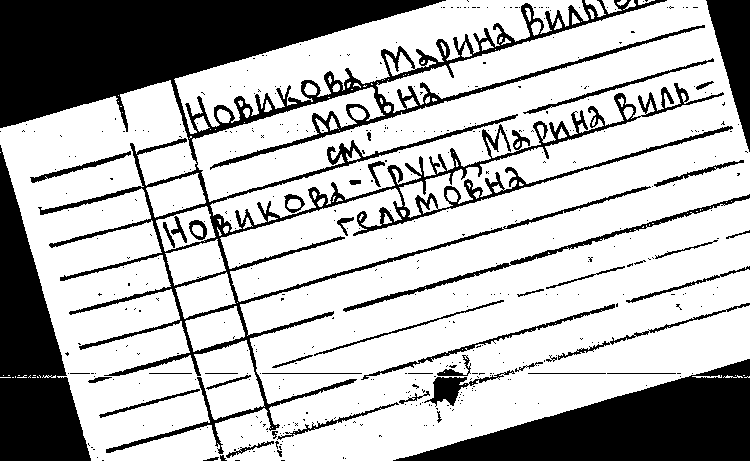 Новикова Марина Вильгель
мовна
см:
Новикова-Грунд, Марина Виль-
гельмовна